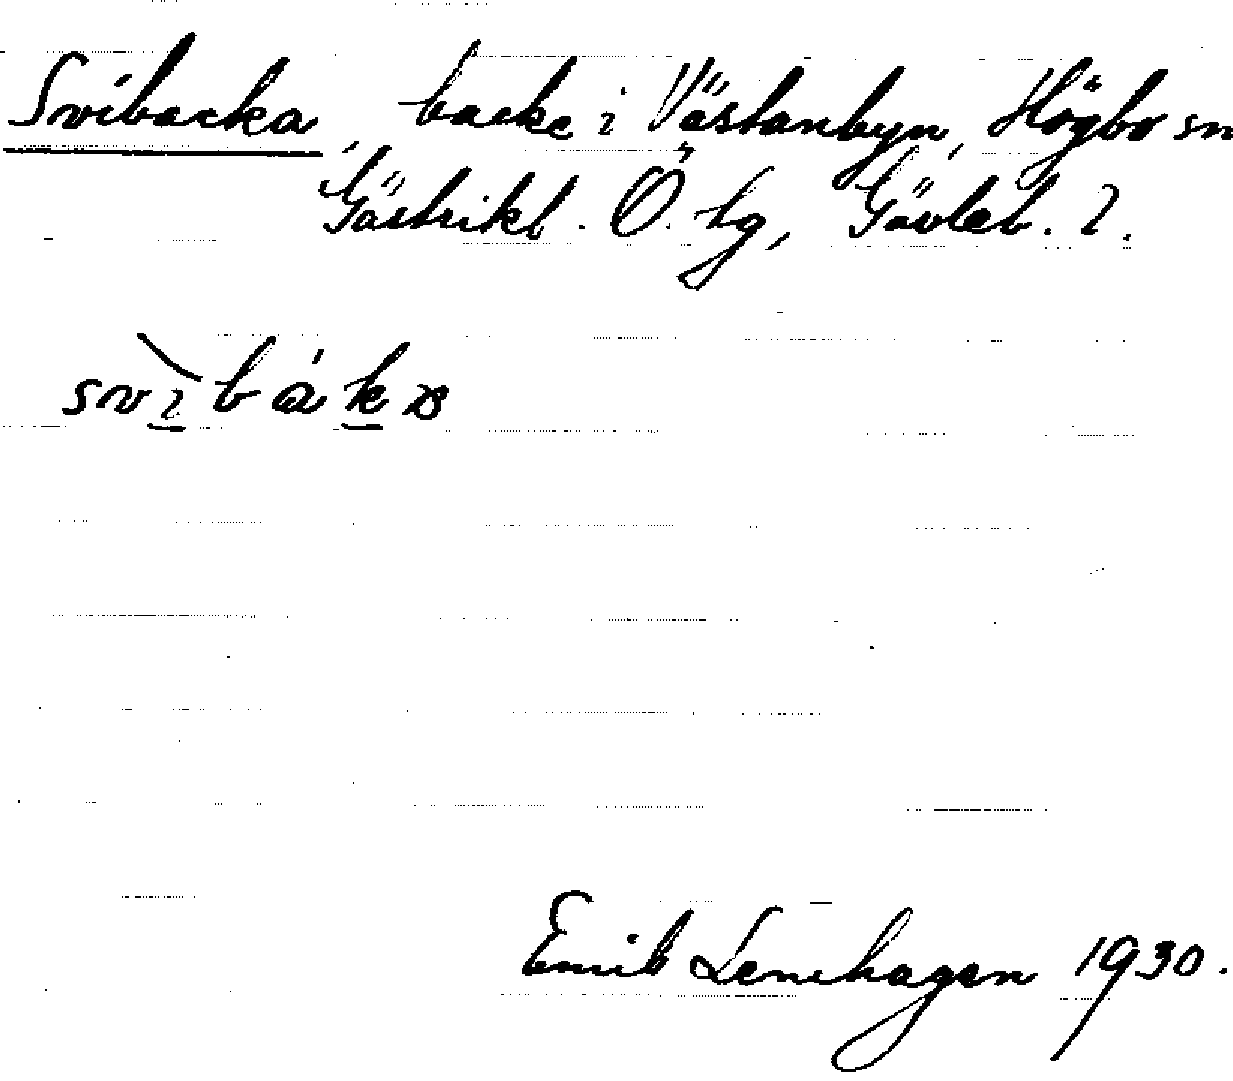 Svibacka, backe i Västanbyn, Högbo sn
Gästrikl. Ö. tg, Gävleb. l.
Emil Lenehagen 1930.